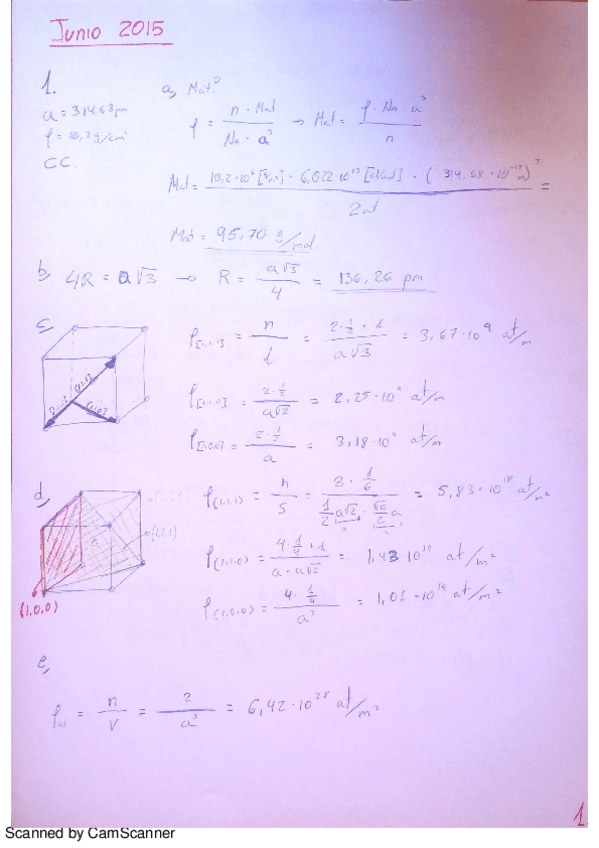 Junio 2015
1.
a = 314.68 pm
ρ = 10,2 g/cm³
CC.
a, Mat?
ρ = n · Mat / NA · a³ → Mat = ρ · NA · a³ / n
Mat = 10,2·10⁶ [g/m³] · 6,022·10²³ [at/mol] · (314,68·10⁻¹² m)³ / 2at =
Mat = 95,70 g/mol
b, 4R = a√3 → R = a√3 / 4 = 136,26 pm
c,
ρ[1,1,1] = n / l = 2·½ + 1 / a√3 = 3,67·10⁹ at/m
ρ[1,1,0] = 2·½ / a√2 = 2,25·10⁹ at/m
ρ[1,0,0] = 2·½ / a = 3,18·10⁹ at/m
d,
ρ(1,1,1) = n / S = 3 · 1/6 / = 5,83·10¹⁸ at/m²
ρ(1,1,0) = 4·¼ + 1 / a·a√2 = 1,43·10¹⁹ at/m²
ρ(1,0,0) = 4·¼ / a² = 1,01·10¹⁹ at/m²
(1,0,0)
e,
= n / V = 2 / a³ = 6,42·10²⁸ at/m³
1
Scanned by CamScanner